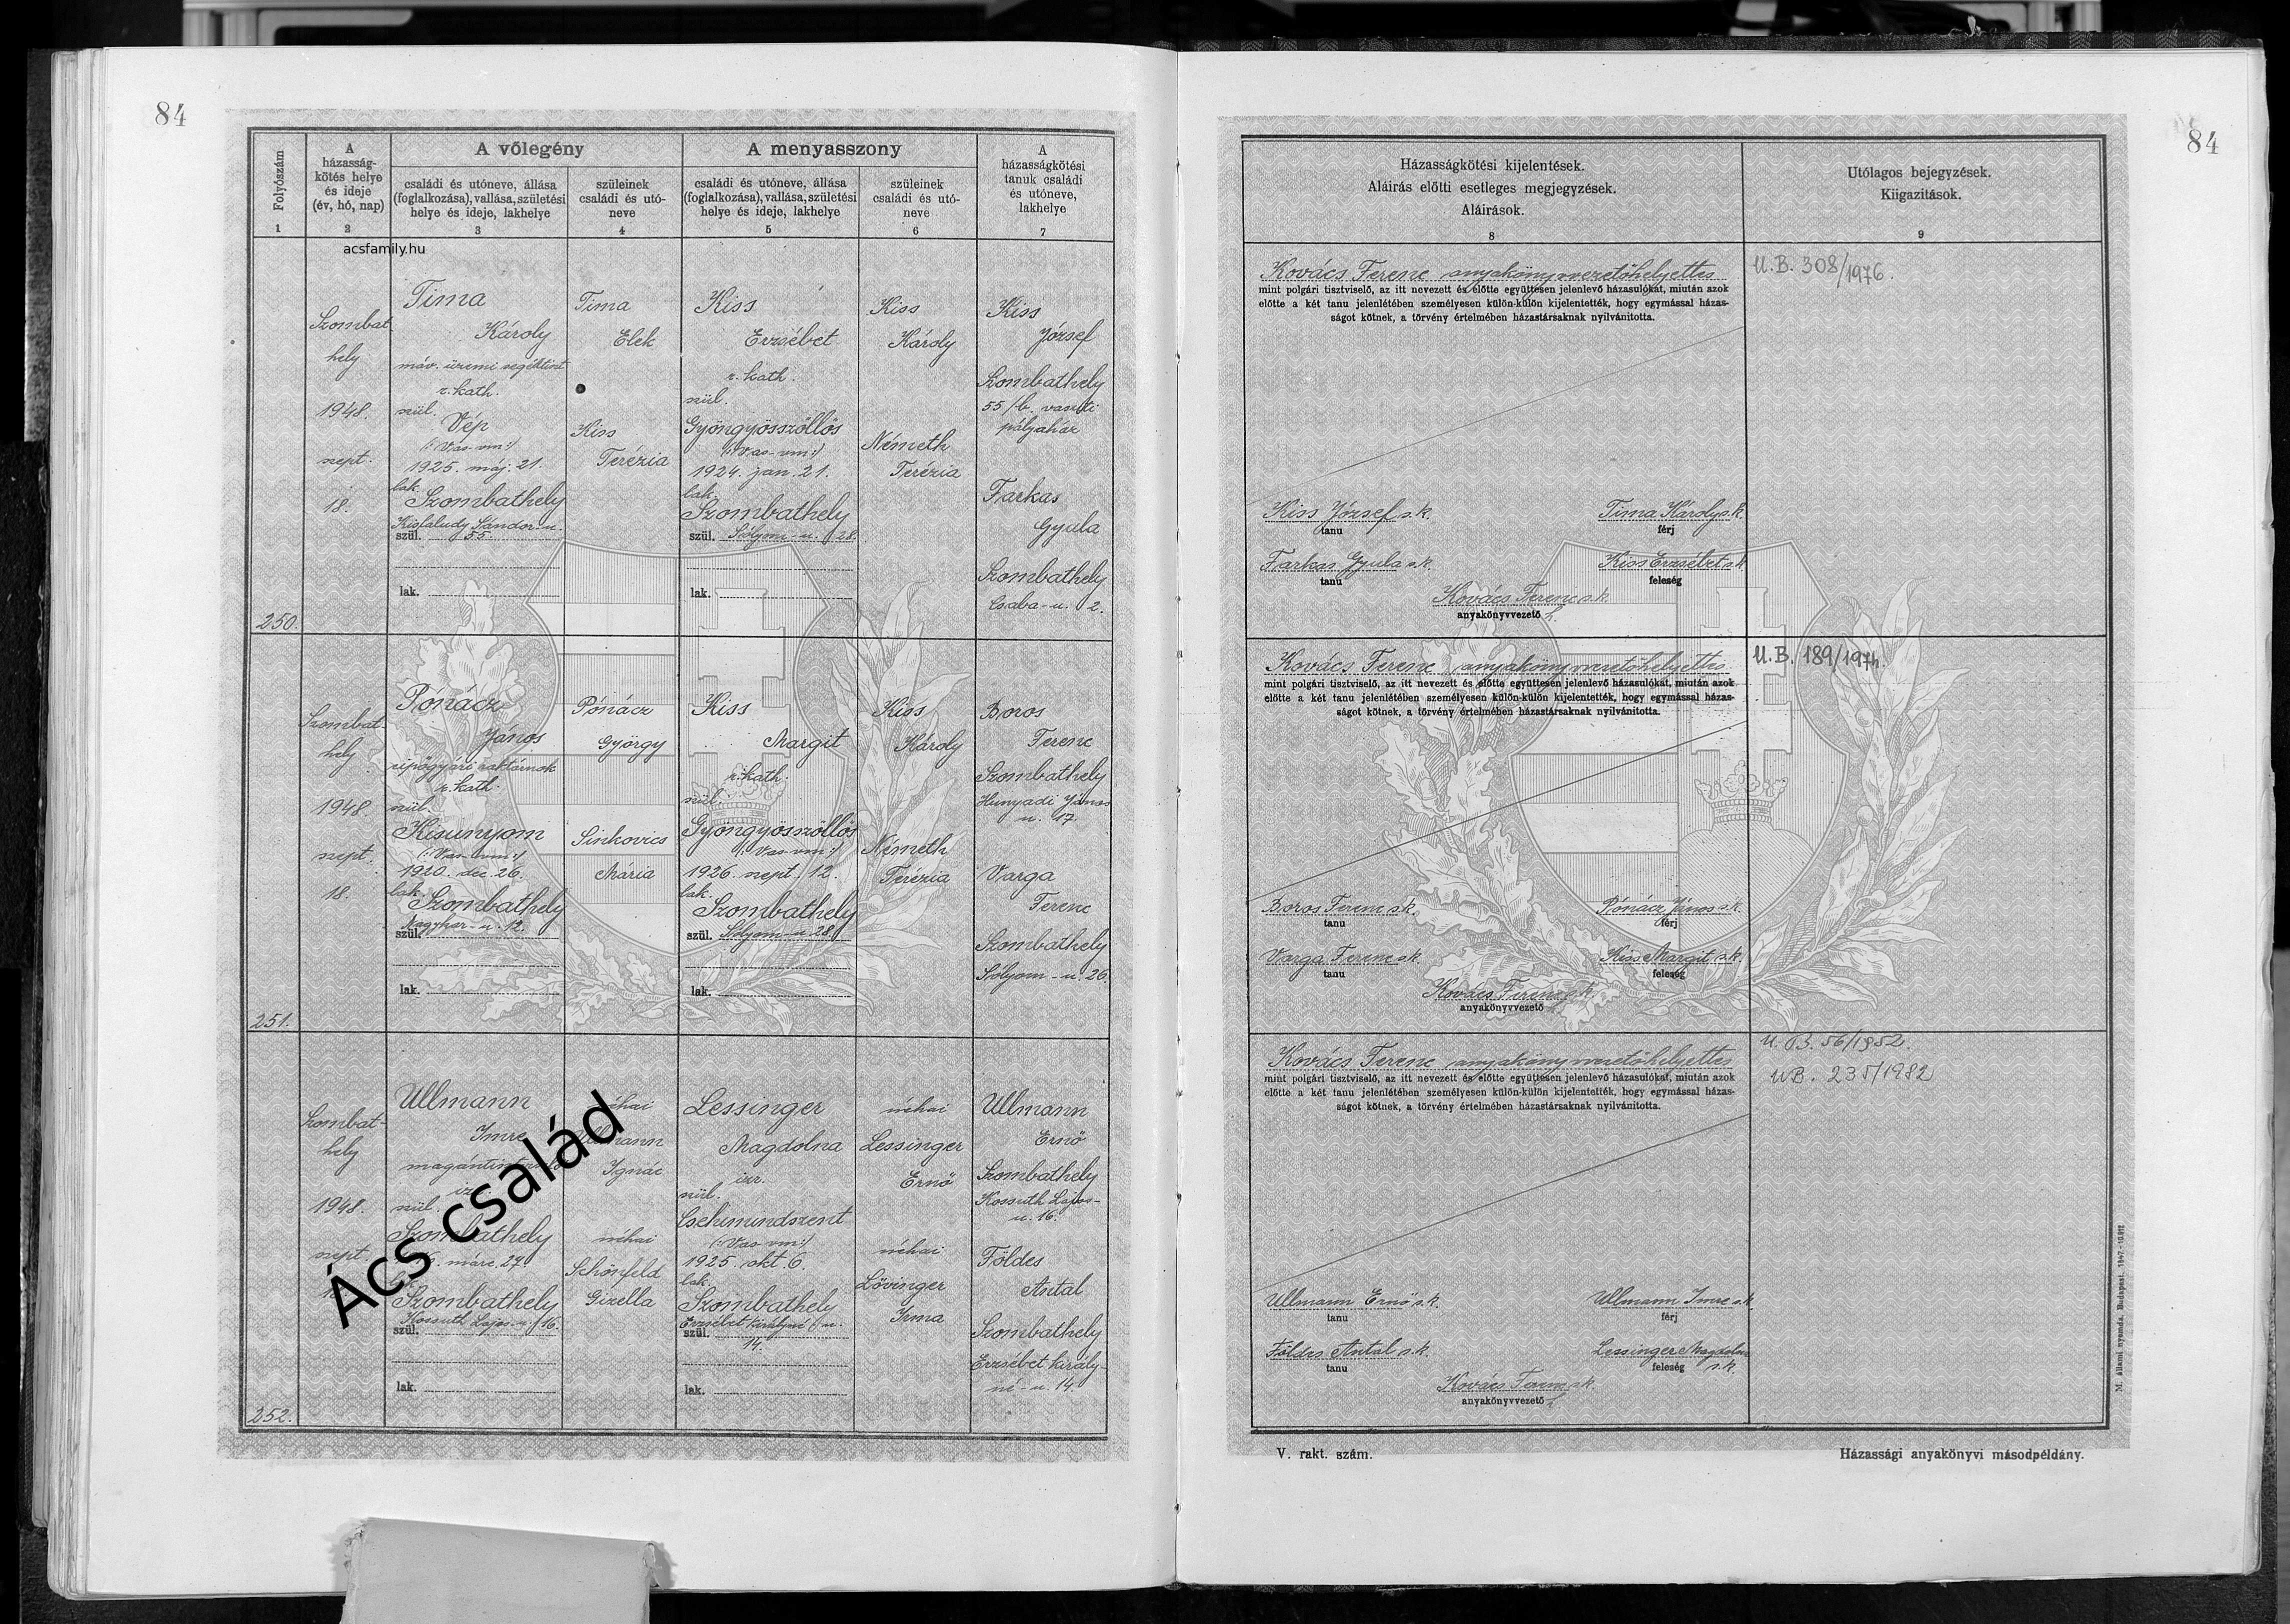 84
Folyószám
1
A
házasság-
kötés helye
és ideje
(év, hó, nap)
2
A vőlegény
családi és utóneve, állása
(foglalkozása), vallása, születési
helye és ideje, lakhelye
3
szüleinek
családi és utó-
neve
4
A menyasszony
családi és utóneve, állása
(foglalkozása), vallása, születési
helye és ideje, lakhelye
5
szüleinek
családi és utó-
neve
6
A
házasságkötési
tanuk családi
és utóneve,
lakhelye
7
acsfamily.hu
250.
Szombat
hely
1948.
szept.
18.
Tima
Károly
máv. üzemi segédtiszt
r. kath.
szül.
Vép
(: Vas-vm :)
1925. máj. 21.
lak.
Szombathely
Kisfaludy Sándor-u.
szül. 55.
lak.
Tima
Elek
Kiss
Terézia
Kiss
Erzsébet
r. kath.
szül.
Gyöngyösszöllös
(: Vas-vm :)
1924. jan. 21.
lak.
Szombathely
szül. Sólyom-u. 28.
lak.
Kiss
Károly
Németh
Terézia
Kiss
József
Szombathely
55/b. vasuti
pályaház
Farkas
Gyula
Szombathely
Csaba-u. 2.
251.
Szombat
hely
1948.
szept.
18.
Pónácz
János
cipőgyári raktárnok
r. kath.
szül.
Kisunyom
(: Vas-vm :)
1920. dec. 26.
lak.
Szombathely
szül. Nagykar-u. 12.
lak.
Pónácz
György
Sinkovics
Mária
Kiss
Margit
r. kath.
szül.
Gyöngyösszöllös
(: Vas-vm :)
1926. szept. 12.
lak.
Szombathely
szül. Sólyom-u. 28.
lak.
Kiss
Károly
Németh
Terézia
Boros
Ferenc
Szombathely
Hunyadi János
u. 17.
Varga
Ferenc
Szombathely
Sólyom-u. 26.
252.
Szombat-
hely
1948.
szept.
Ullmann
Imre
szül.
Szombathely
márc. 27.
Szombathely
Kossuth Lajos-u. 16.
szül.
lak.
Ignác
néhai
Schönfeld
Gizella
Lessinger
Magdolna
izr.
szül.
Csehimindszent
(: Vas-vm :)
1925. okt. 6.
lak.
Szombathely
Erzsébet királyné-u.
szül. 14.
lak.
néhai
Lessinger
Ernő
néhai
Lövinger
Irma
Ullmann
Ernő
Szombathely
Kossuth Lajos-
u. 16.
Földes
Antal
Szombathely
Erzsébet király-
né-u. 14.
Ács család
84
Házasságkötési kijelentések.
Aláirás előtti esetleges megjegyzések.
Aláirások.
8
Utólagos bejegyzések.
Kiigazitások.
9
Kovács Ferenc anyakönyvvezetőhelyettes
mint polgári tisztviselő, az itt nevezett és előtte együttesen jelenlevő házasulókat, miután azok
előtte a két tanu jelenlétében személyesen külön-külön kijelentették, hogy egymással házas-
ságot kötnek, a törvény értelmében házastársaknak nyilvánitotta.
U.B. 308/1976.
Kiss József s.k.
tanu
Tima Károly s.k.
férj
Farkas Gyula s.k.
tanu
Kiss Erzsébet s.k.
feleség
Kovács Ferenc s.k.
anyakönyvvezető h.
Kovács Ferenc anyakönyvvezetőhelyettes
mint polgári tisztviselő, az itt nevezett és előtte együttesen jelenlevő házasulókat, miután azok
előtte a két tanu jelenlétében személyesen külön-külön kijelentették, hogy egymással házas-
ságot kötnek, a törvény értelmében házastársaknak nyilvánitotta.
U.B. 189/1974.
Boros Ferenc s.k.
tanu
Pónácz János s.k.
férj
Varga Ferenc s.k.
tanu
Kiss Margit s.k.
feleség
Kovács Ferenc s.k.
anyakönyvvezető
Kovács Ferenc anyakönyvvezetőhelyettes
mint polgári tisztviselő, az itt nevezett és előtte együttesen jelenlevő házasulókat, miután azok
előtte a két tanu jelenlétében személyesen külön-külön kijelentették, hogy egymással házas-
ságot kötnek, a törvény értelmében házastársaknak nyilvánitotta.
U.B. 56/1952.
UB. 235/1982
Ullmann Ernő s.k.
tanu
Ullmann Imre s.k.
férj
Földes Antal s.k.
tanu
Lessinger Magdolna
feleség s.k.
Kovács Ferenc s.k.
anyakönyvvezető h.
V. rakt. szám.
Házassági anyakönyvi másodpéldány.